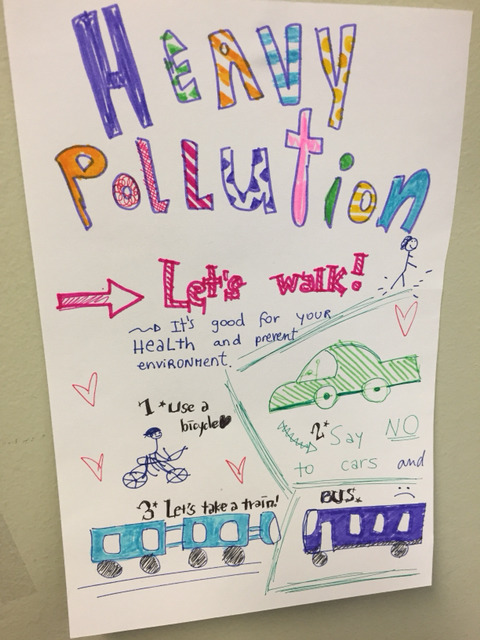 HEAVY
POllution
Let's walk!
It's good for your
Health and prevent
environment.
1* Use a
bicycle
2* Say NO
to cars and
BUS.
3* Let's take a train!